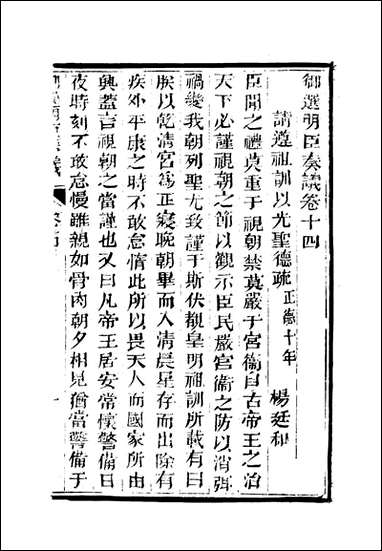 御選明臣奏議卷十四
請遵祖訓以光聖德疏正德十年 楊廷和
臣聞之禮莫重于視朝禁莫嚴于宮衞自古帝王之治
天下必謹視朝之節以觀示臣民嚴宮衞之防以消弭
禍變我朝列聖尤致謹于斯伏覩皇明祖訓所載有曰
朕以乾清宮爲正寢晚朝畢而入清晨星存而出除有
疾外平康之時不敢怠惰此所以畏天人而國家所由
興蓋言視朝之當謹也又曰凡帝王居安常懷警備日
夜時刻不敢怠慢雖親如骨肉朝夕相見猶當警備于